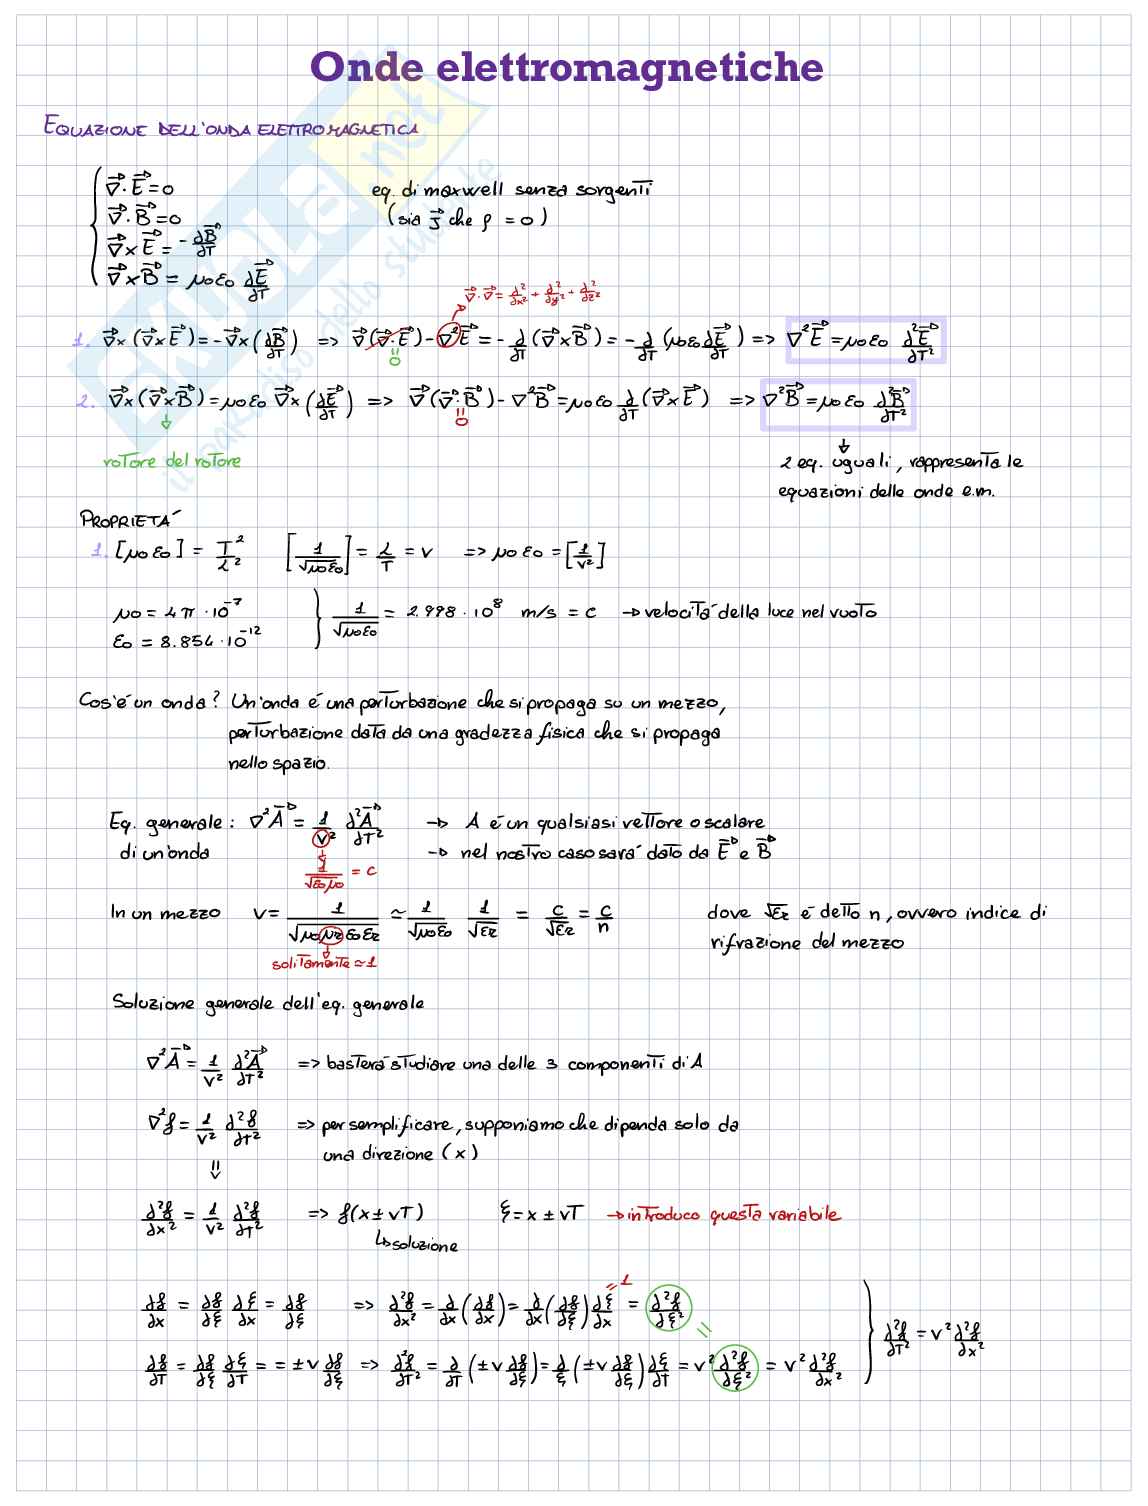 Onde elettromagnetiche
EQUAZIONE DELL'ONDA ELETTROMAGNETICA
∇⃗·E⃗=0 eq. di maxwell senza sorgenti
∇⃗·B⃗=0 (sia J⃗ che ρ = 0)
∇⃗×E⃗ = -∂B⃗/∂T
∇⃗×B⃗ = μ0ε0 ∂E⃗/∂T
∇⃗·∇⃗ = ∂²/∂x² + ∂²/∂y² + ∂²/∂z²
1. ∇⃗×(∇⃗×E⃗) = -∇⃗×(∂B⃗/∂T) => ∇⃗(∇⃗·E⃗) - ∇²E⃗ = -∂/∂T (∇⃗×B⃗) = -∂/∂T (μ0ε0 ∂E⃗/∂T) => ∇²E⃗ = μ0ε0 ∂²E⃗/∂T²
= 0
2. ∇⃗×(∇⃗×B⃗) = μ0ε0 ∇⃗×(∂E⃗/∂T) => ∇⃗(∇⃗·B⃗) - ∇²B⃗ = μ0ε0 ∂/∂T (∇⃗×E⃗) => ∇²B⃗ = μ0ε0 ∂²B⃗/∂T²
= 0
rotore del rotore 2 eq. uguali, rappresenta le
equazioni delle onde e.m.
PROPRIETA'
1. [μ0ε0] = T²/L² [1/√μ0ε0] = L/T = v => μ0ε0 = [1/v²]
μ0 = 4π · 10⁻⁷
ε0 = 8.854 · 10⁻¹² } 1/√μ0ε0 = 2.998 · 10⁸ m/s = c → velocità della luce nel vuoto
Cos'é un onda? Un'onda é una perturbazione che si propaga su un mezzo,
perturbazione data da una gradezza fisica che si propaga
nello spazio.
Eq. generale: ∇²A⃗ = 1/v² ∂²A⃗/∂T² → A é un qualsiasi vettore o scalare
di un'onda → nel nostro caso sará dato da E⃗ e B⃗
1/√ε0μ0 = c
In un mezzo v = 1/√μ0μrε0εr ≃ 1/√μ0ε0 1/√εr = c/√εr = c/n dove √εr é detto n, ovvero indice di
rifrazione del mezzo
solitamente ≃ 1
Soluzione generale dell'eq. generale
∇²A⃗ = 1/v² ∂²A⃗/∂T² => basterá studiare una delle 3 componenti di A
∇²f = 1/v² ∂²f/∂T² => per semplificare, supponiamo che dipenda solo da
una direzione (x)
∂²f/∂x² = 1/v² ∂²f/∂T² => f(x ± vT) ξ = x ± vT → introduco questa variabile
↳ soluzione
= 1
∂f/∂x = ∂f/∂ξ ∂ξ/∂x = ∂f/∂ξ => ∂²f/∂x² = ∂/∂x (∂f/∂x) = ∂/∂x (∂f/∂ξ) ∂ξ/∂x = ∂²f/∂ξ²
=
∂f/∂T = ∂f/∂ξ ∂ξ/∂T = = ±v ∂f/∂ξ => ∂²f/∂T² = ∂/∂T (±v ∂f/∂ξ) = ∂/ξ (±v ∂f/∂ξ) ∂ξ/∂T = v² ∂²f/∂ξ² = v² ∂²f/∂x²
} ∂²f/∂T² = v² ∂²f/∂x²
SKUOLA.net
il paradiso dello studente